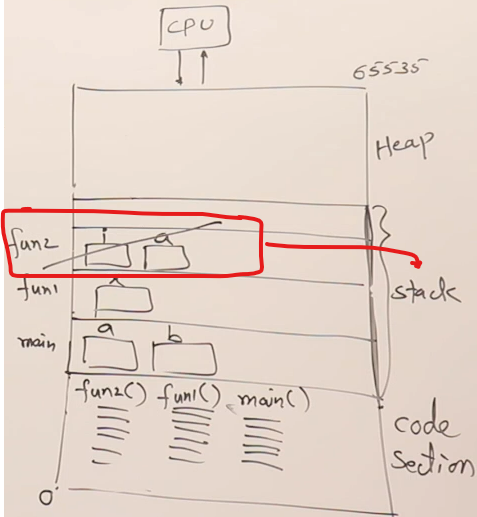 CPU
65535
Heap
fun2
i a
fun1
x
stack
main
a b
fun2() fun1() main()
code
Section
0